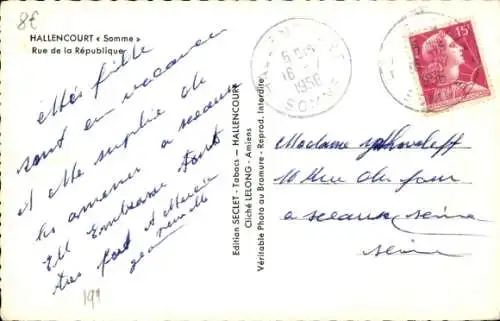 8€
HALLENCOURT « Somme »
Rue de la République
sont en vacances
et elle supplie de
les amener a sceaux
Elle Embrasse tout
tres fort et Mercie
191
Edition SECLET - Tabacs - HALLENCOURT
Cliché LELONG - Amiens
Véritable Photo au Bromure - Reprod. Interdite
16 - 7
1956
SOMME
15F
Madame
10 Rue du four
a sceaux seine
seine